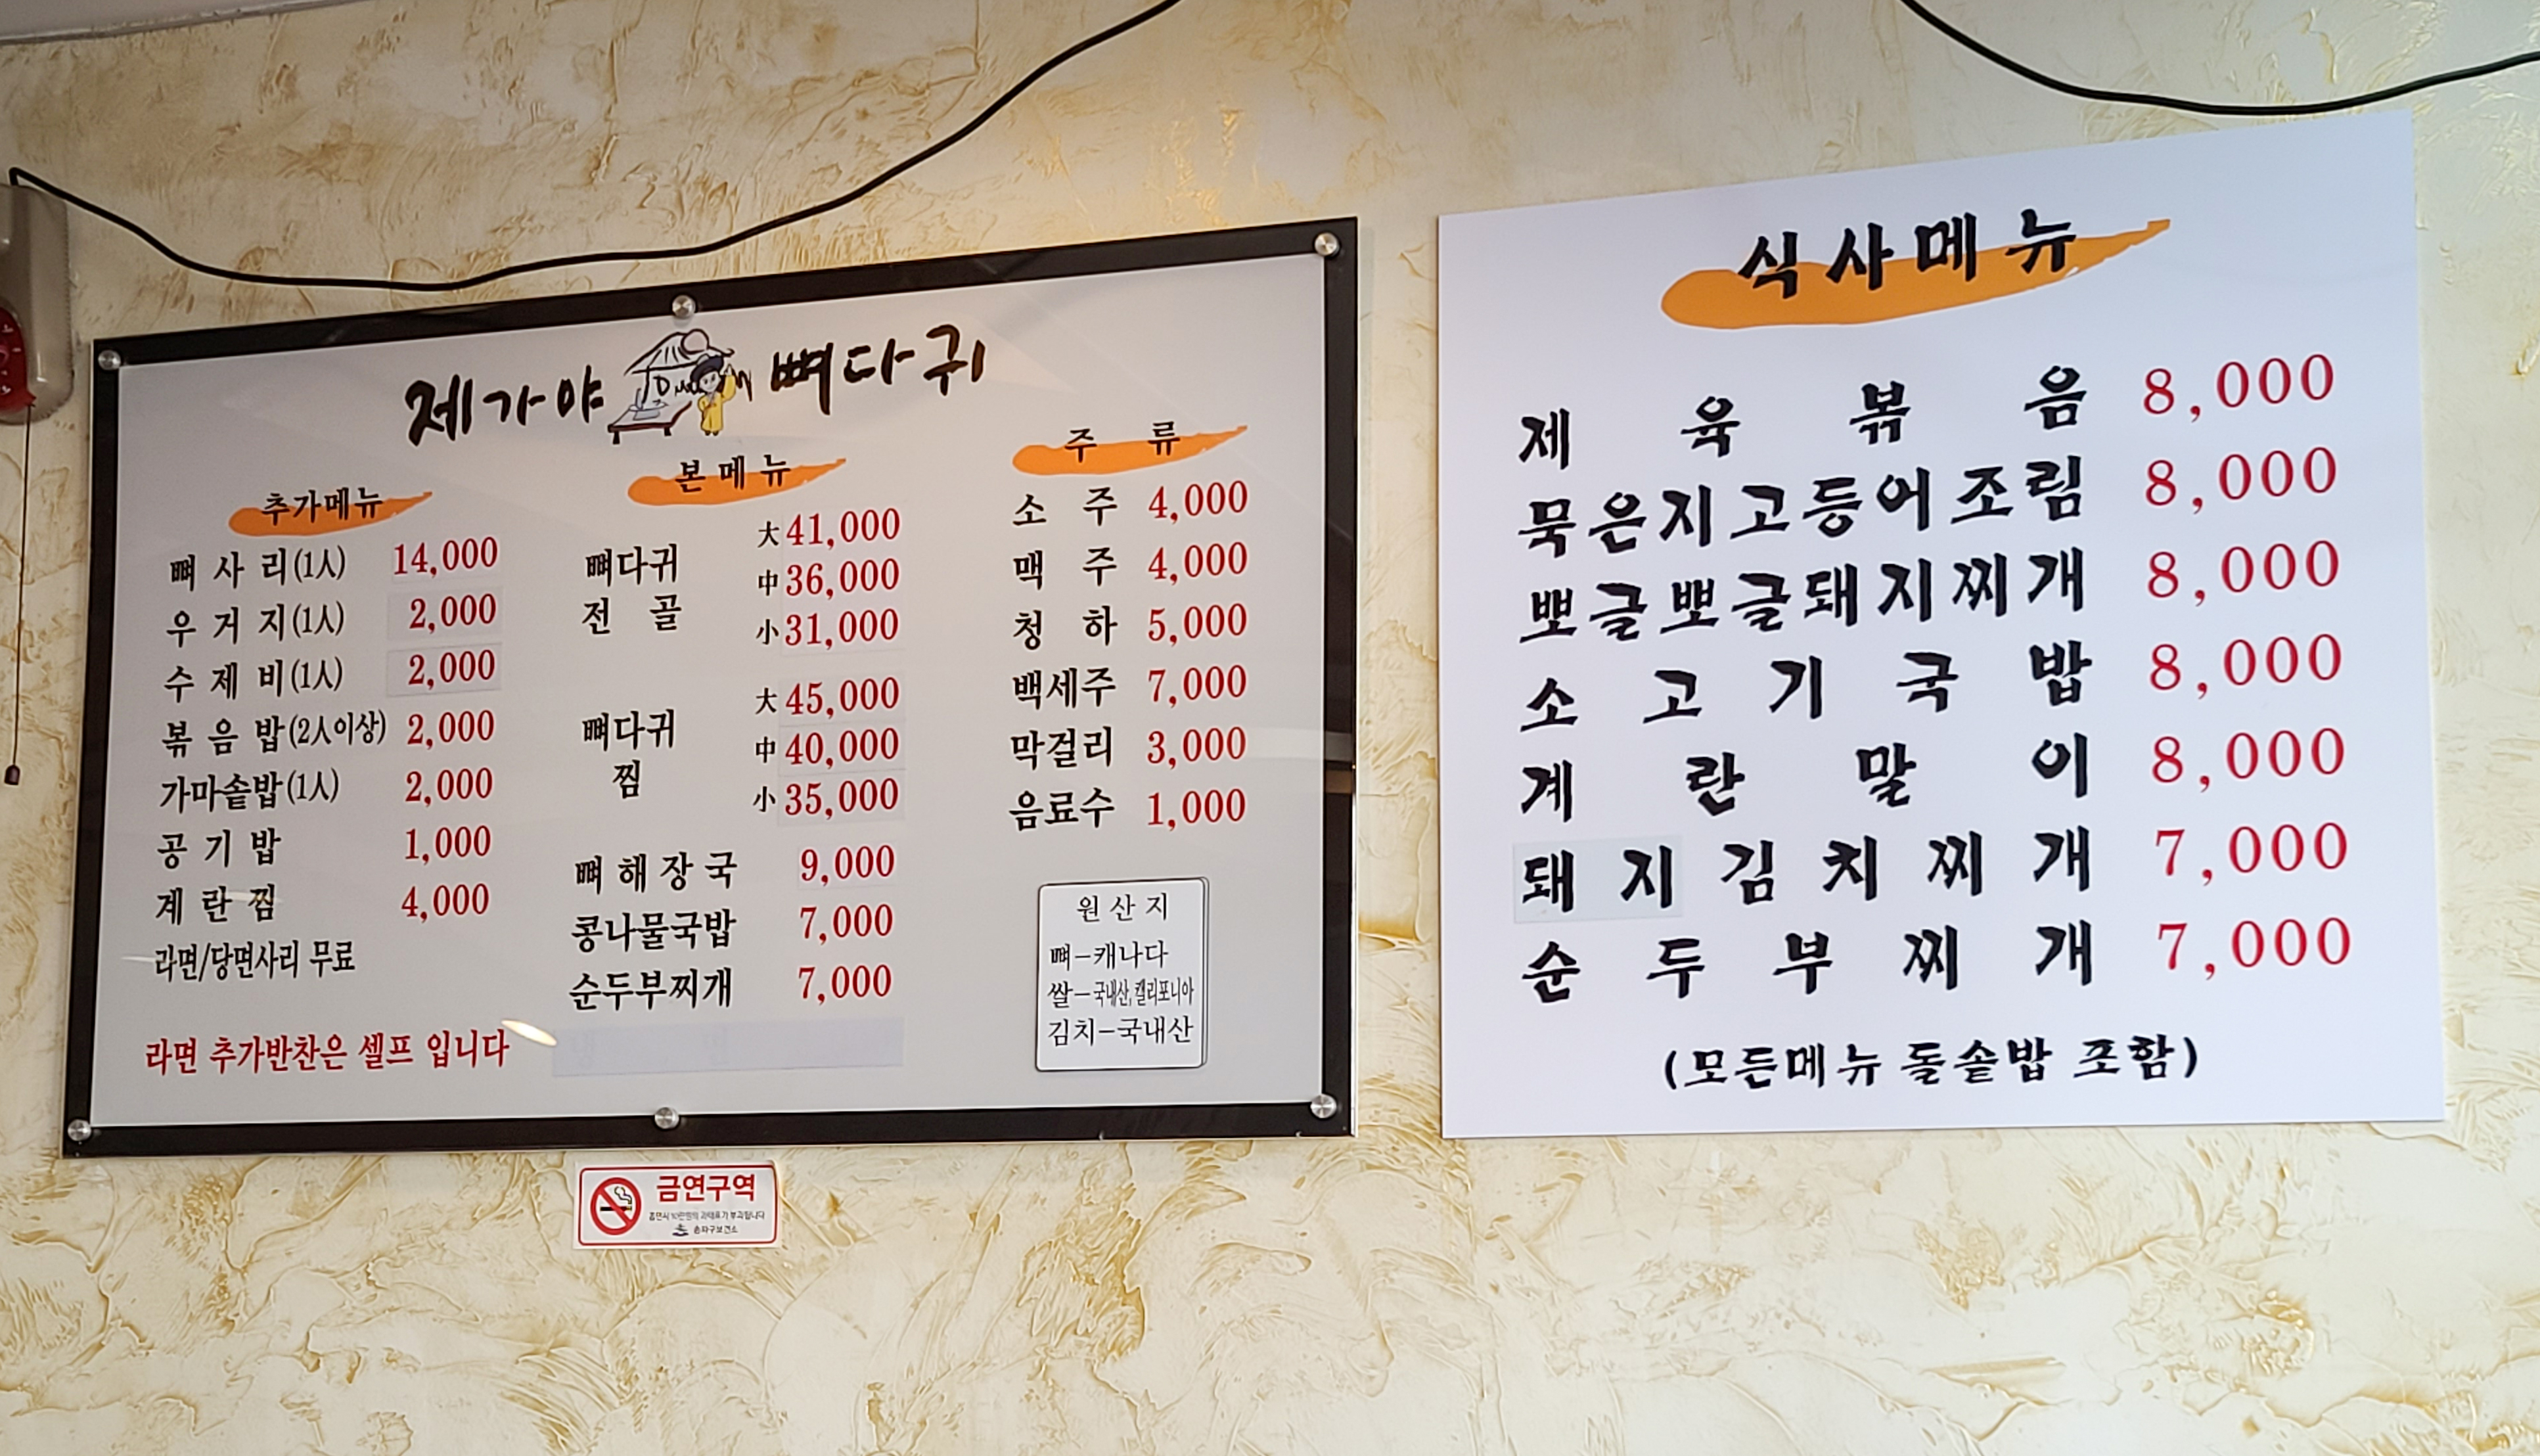 제가야 뼈다귀
추가메뉴
뼈사리(1人) 14,000
우거지(1人) 2,000
수제비(1人) 2,000
볶음밥(2人이상) 2,000
가마솥밥(1人) 2,000
공기밥 1,000
계란찜 4,000
라면/당면사리 무료
라면 추가반찬은 셀프 입니다
본메뉴
뼈다귀
전골
大 41,000
中 36,000
小 31,000
뼈다귀
찜
大 45,000
中 40,000
小 35,000
뼈해장국 9,000
콩나물국밥 7,000
순두부찌개 7,000
주류
소주 4,000
맥주 4,000
청하 5,000
백세주 7,000
막걸리 3,000
음료수 1,000
원산지
뼈-캐나다
쌀-국내산, 캘리포니아
김치-국내산
식사메뉴
제육볶음 8,000
묵은지고등어조림 8,000
뽀글뽀글돼지찌개 8,000
소고기국밥 8,000
계란말이 8,000
돼지김치찌개 7,000
순두부찌개 7,000
(모든메뉴 돌솥밥 포함)
금연구역
흡연시 10만원의 과태료가 부과됩니다
송파구보건소